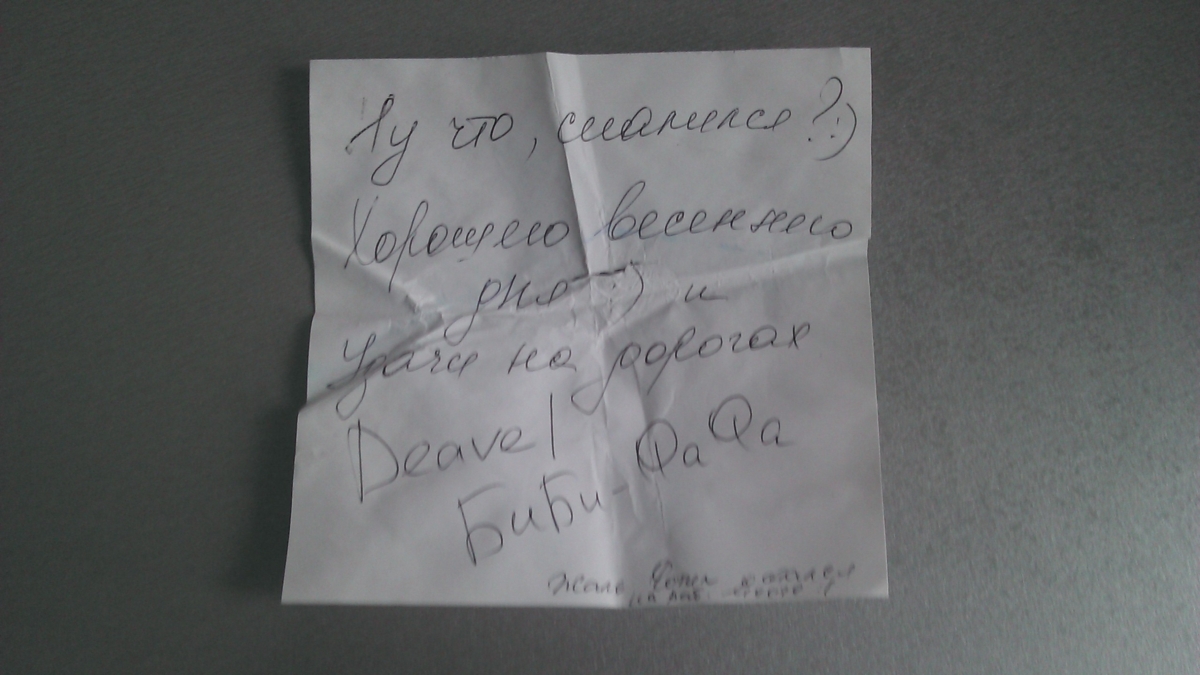 Ну что, смапился ?:)
Хорошего весеннего
дня :) и
Удачи на дорогах
Deavel
БиБи-ФаФа
Жаль